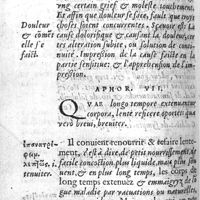 vng certain grief & moleste tourbement.
Et affin que douleur se face, fault que trois
Douleur choses soient concurrentes. Scauoir est la
& cómēt cause dolorifique & causant la douleur. Et
elle se la alteration subite, ou solution de conti-
faict. nuité. Impression de la cause faicte en la
partie sensitiue: & l'apprehension de l'im-
pression.
APHOR. VII.
QVAE longo tempore extenuantur
corpora, lentè reficere oportet: quæ
verò breui, breuiter.
Il conuient renourrir & refaire lente-
ment, c'est à dire, de petit nourrissement
facile concoction, plus liquide, mais plus
tenuiter. & en plus long temps, les corps de
long temps extenuez & emmaigriz de
gue maladie par vacuations ou naturelles